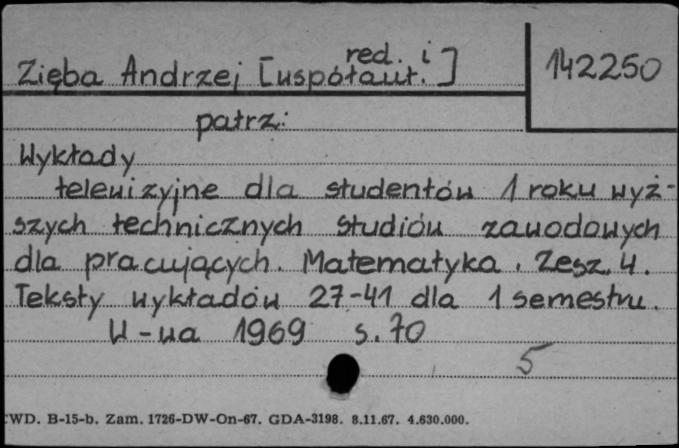 Zięba Andrzej [współaut. red. i]
142250
patrz:
Wykłady
telewizyjne dla studentów 1 roku wyż-
szych technicznych studiów zawodowych
dla pracujących. Matematyka. Zesz. 4.
Teksty wykładów 27-41 dla 1 semestru.
W-wa 1969 s. 70
5
WD. B-15-b. Zam. 1726-DW-On-67. GDA-3198. 8.11.67. 4.630.000.